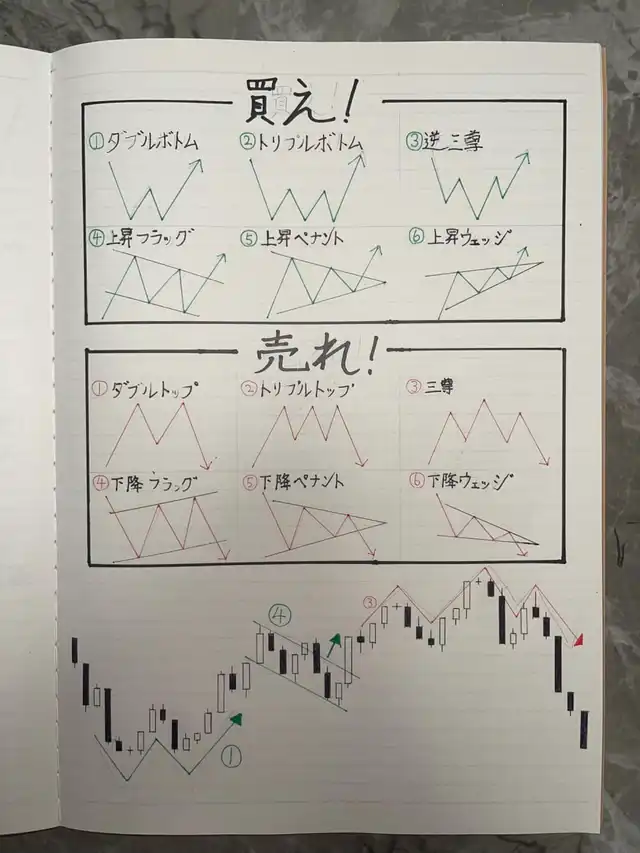 買え!
①ダブルボトム ②トリプルボトム ③逆三尊
④上昇フラッグ ⑤上昇ペナント ⑥上昇ウェッジ
売れ!
①ダブルトップ ②トリプルトップ ③三尊
④下降フラッグ ⑤下降ペナント ⑥下降ウェッジ
④ ③
①